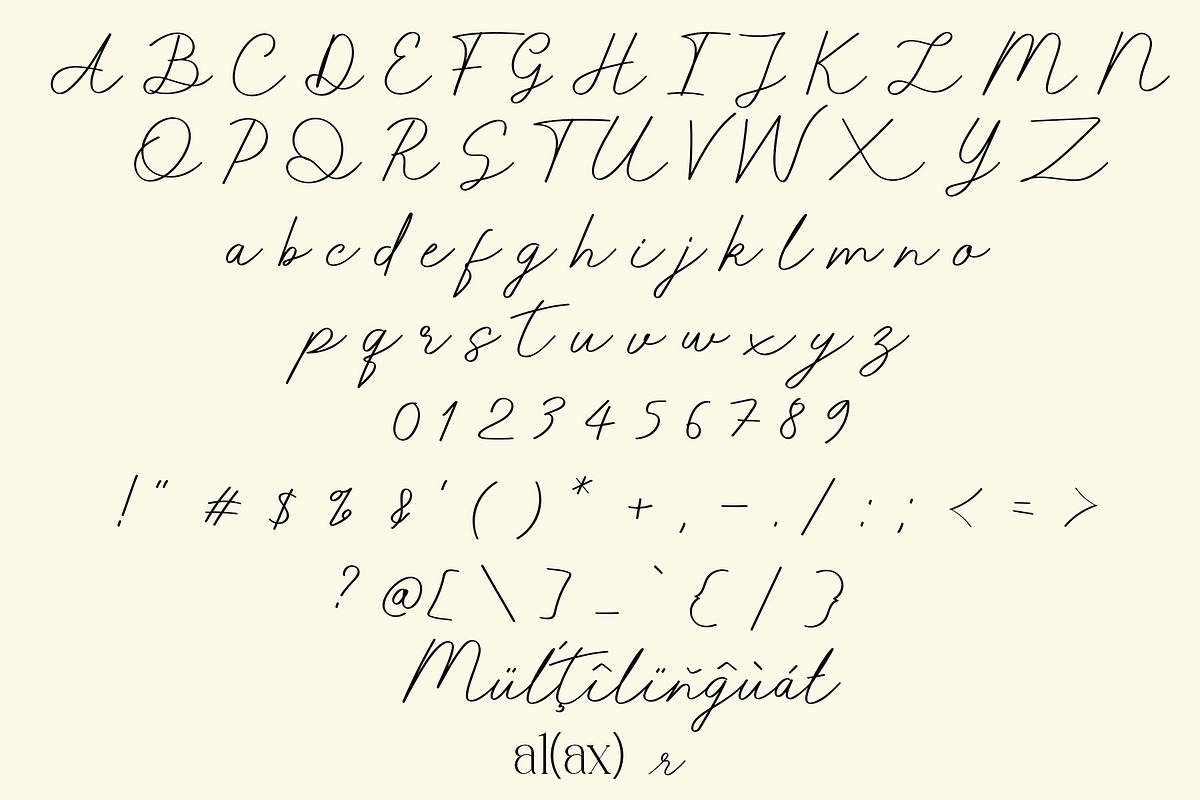 A B C D E F G H I J K L M N
O P Q R S T U V W X Y Z
a b c d e f g h i j k l m n o
p q r s t u v w x y z
0 1 2 3 4 5 6 7 8 9
! " # $ % & ' ( ) * + , - . / : ; < = >
? @ [ \ ] _ ` { | }
Mülţîlïňĝùát
al(ax) r